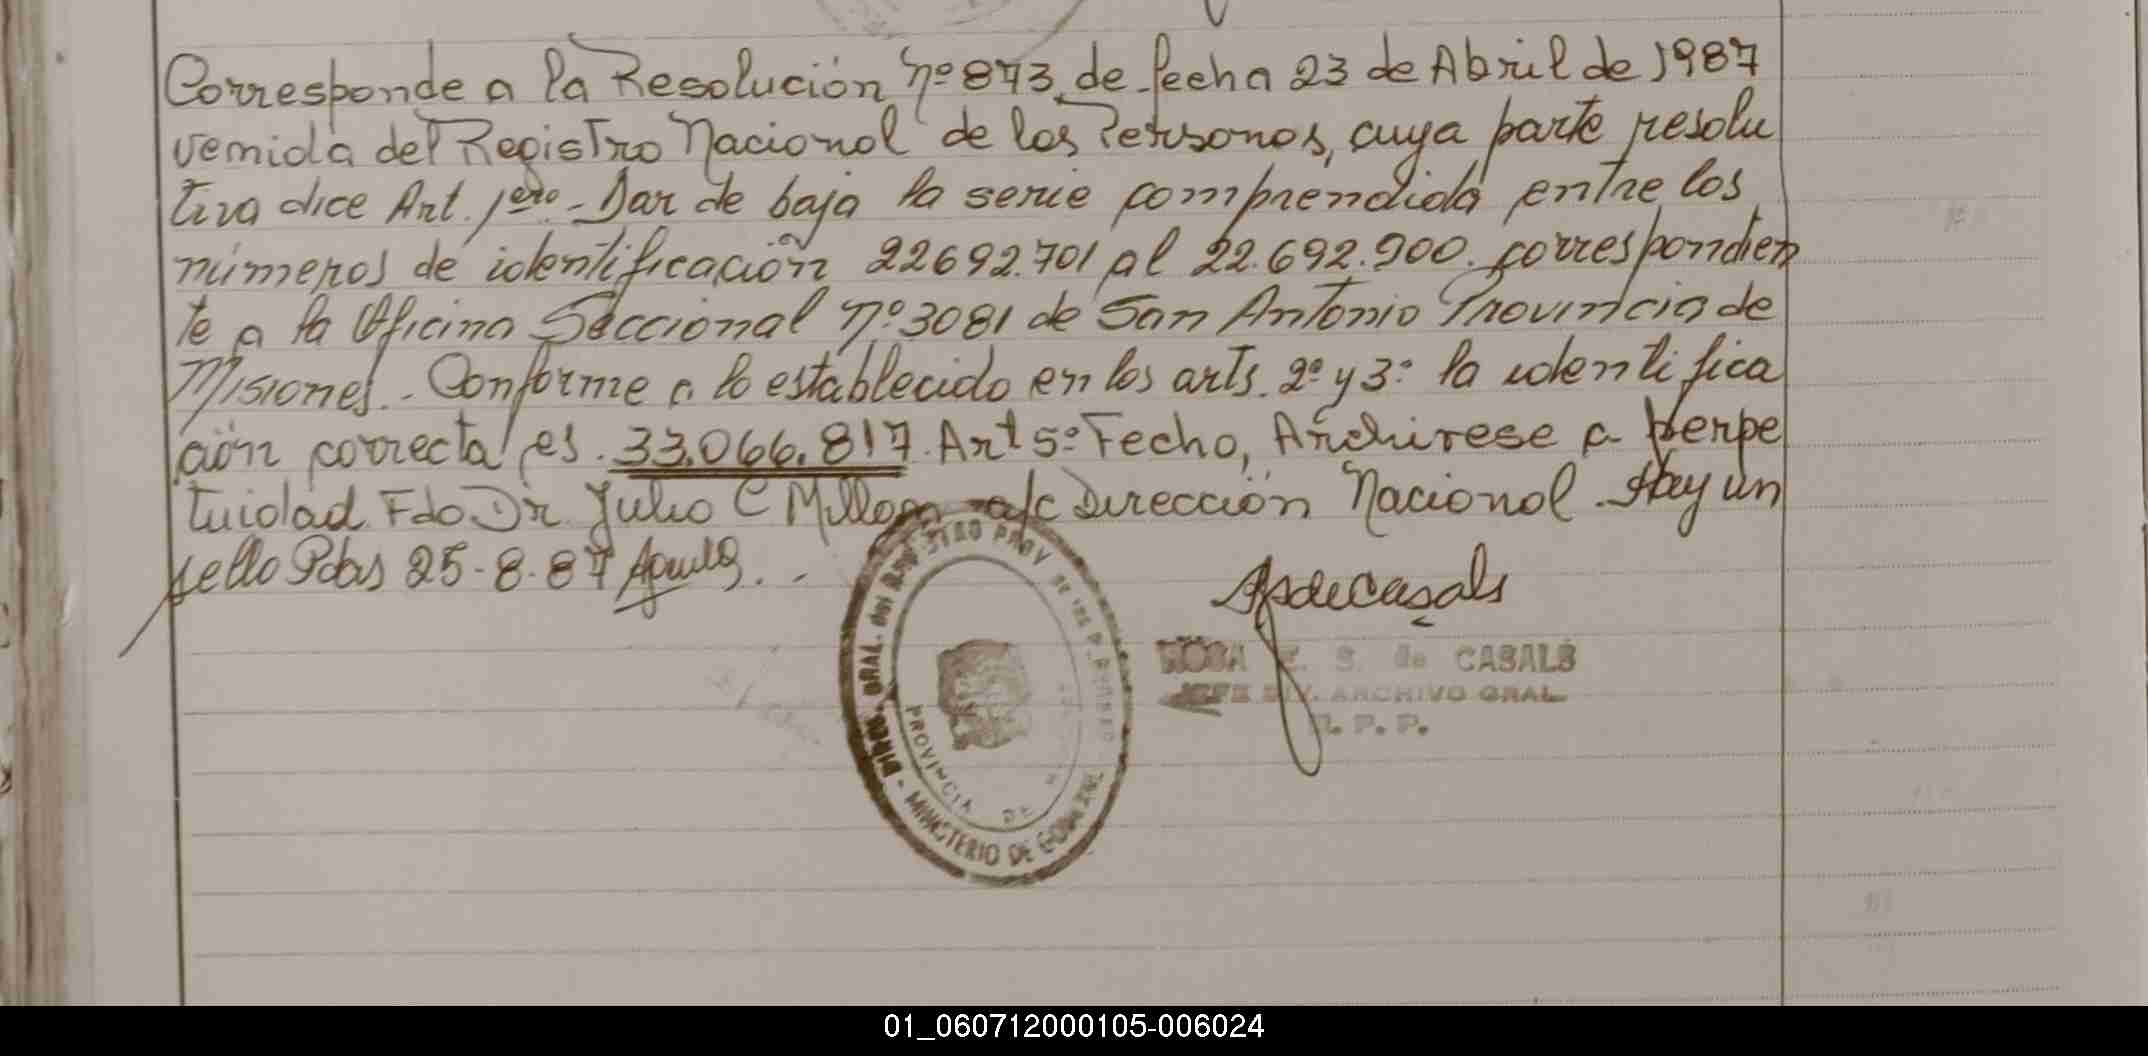 Corresponde a la Resolución nº 873, de fecha 23 de Abril de 1987
venida del Registro Nacional de las Personas, cuya parte resolu
tiva dice Art. 1ero - Dar de baja la serie comprendida entre los
números de identificación 22692.701 al 22.692.900. correspondien
te a la Oficina Seccional nº 3081 de San Antonio Provincia de
Misiones. - Conforme a lo establecido en los arts. 2º y 3º la identifica
ción correcta es. 33.066.817. Art 5º Fecho, Archivese a perpe
tuidad Fdo Dr. Julio C a/c Dirección Nacional. Hay un
sello Pdas 25-8-87
DIREC. GRAL. del REGISTRO PROV DE LAS P
- MINISTERIO DE
PROVINCIA DE
ROSA E. S. de CASALS
JEFE DIV. ARCHIVO GRAL.
R. P. P.
01_060712000105-006024